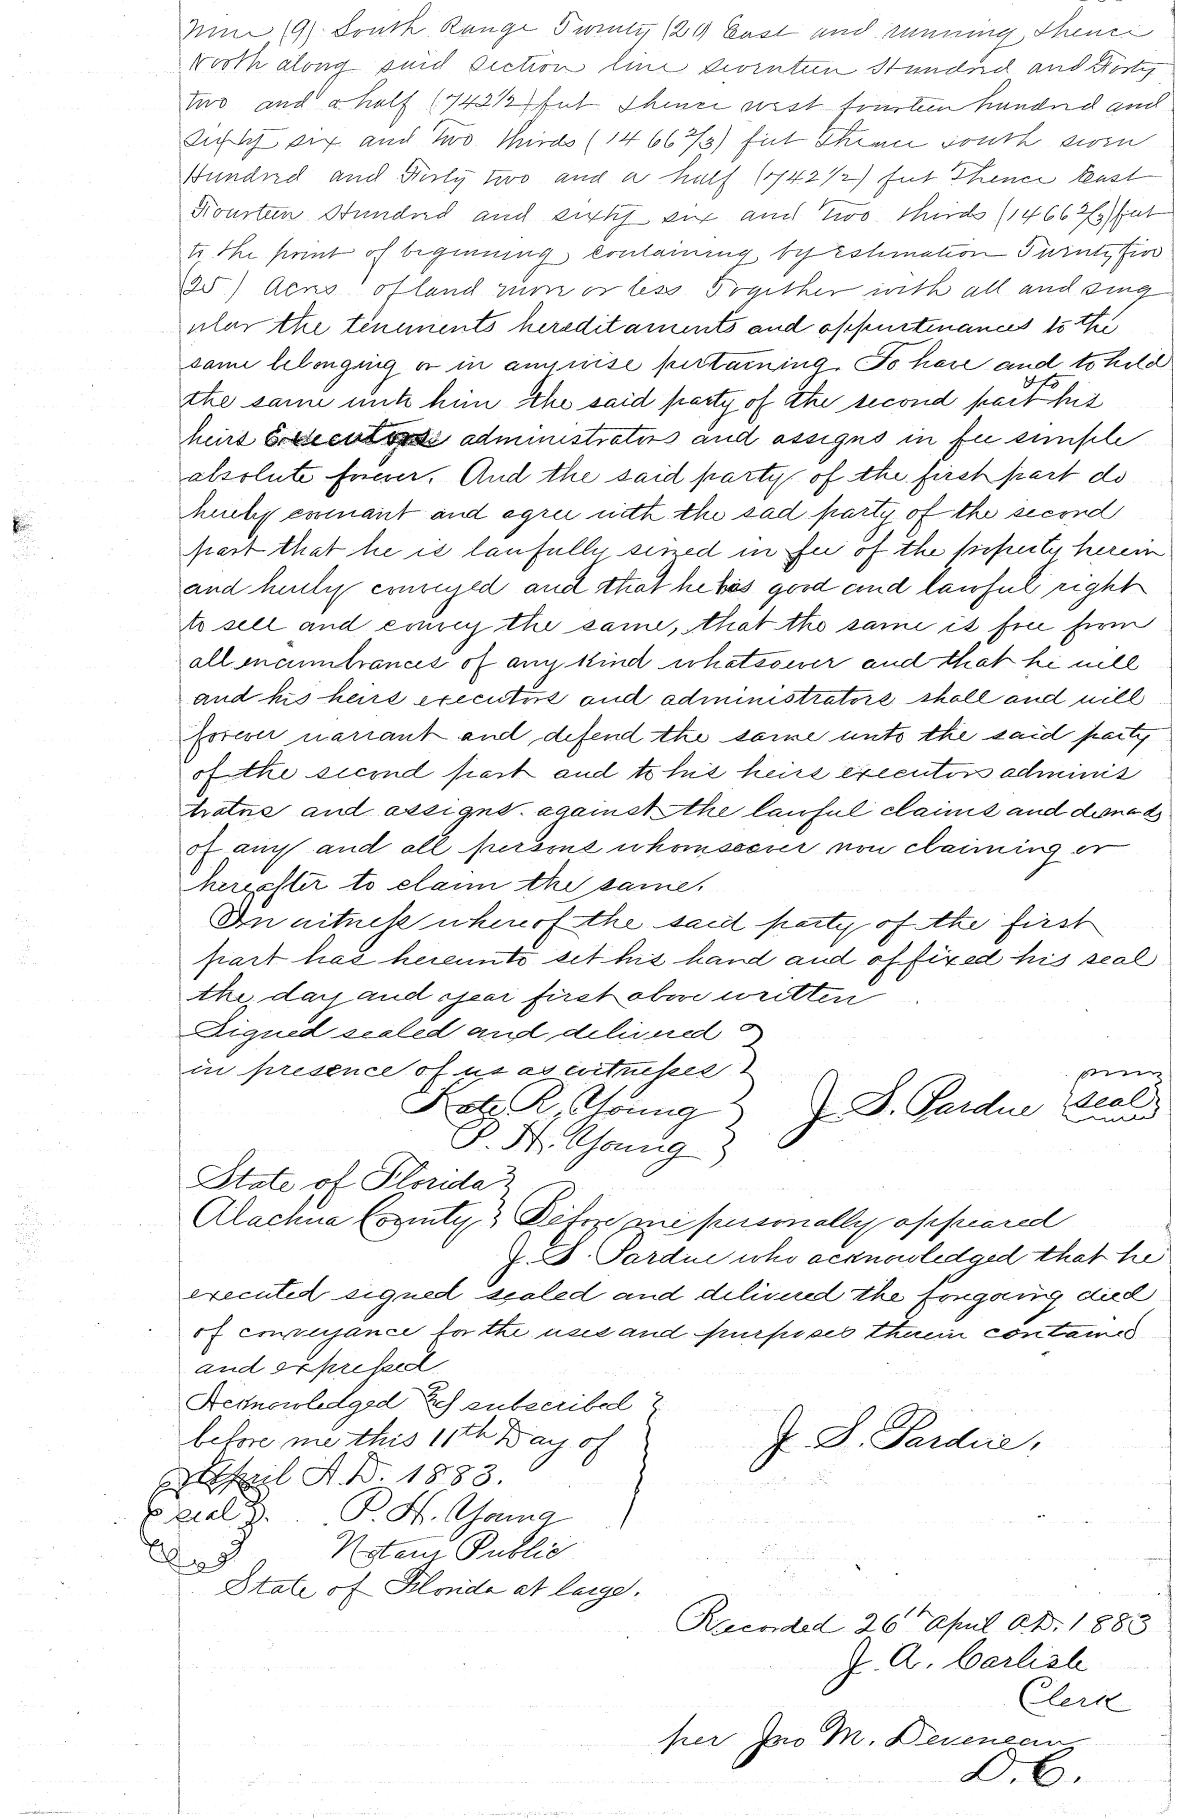 Nine (9) South Range Twenty (20) East and running thence
North along said section line seventeen Hundred and Forty
two and a half (742½) feet thence west fourteen hundred and
sixty six and two thirds (1466⅔) feet Thence south seven
Hundred and Forty two and a half (742½) feet Thence East
Fourteen Hundred and sixty six and two thirds (1466⅔) feet
to the point of beginning containing by Estimation Twenty five
(25) Acres of land more or less Together with all and sing
ular the tenements hereditaments and appurtenances to the
same belonging or in anywise pertaining. To have and to hold
the same unto him the said party of the second part & to his
heirs Executors administrators and assigns in fee simple
absolute forever. And the said party of the first part do
hereby covenant and agree with the sad party of the second
part that he is lawfully seized in fee of the property herein
and hereby conveyed and that he has good and lawful right
to sell and convey the same, that the same is free from
all encumbrances of any kind whatsoever and that he will
and his heirs executors and administrators shall and will
forever warrant and defend the same unto the said party
of the second part and to his heirs executors adminis
trators and assigns against the lawful claims and demads
of any and all persons whomsoever now claiming or
hereafter to claim the same.
In witness whereof the said party of the first
part has hereunto set his hand and affixed his seal
the day and year first above written
Signed sealed and delivered
in presence of us as witnesses
Kate R. Young J. S. Pardue seal
P. H. Young
State of Florida
Alachua County Before me personally appeared
J. S. Pardue who acknowledged that he
executed signed sealed and delivered the forgoing deed
of conveyance for the uses and purposes therein contained
and expressed
Acknowledged & subscribed
before me this 11th Day of J. S. Pardue,
April A.D. 1883.
seal P. H. Young
Notary Public
State of Florida at large.
Recorded 26th April A.D. 1883
J. A. Carlisle
Clerk
per Jno M.
D.C.